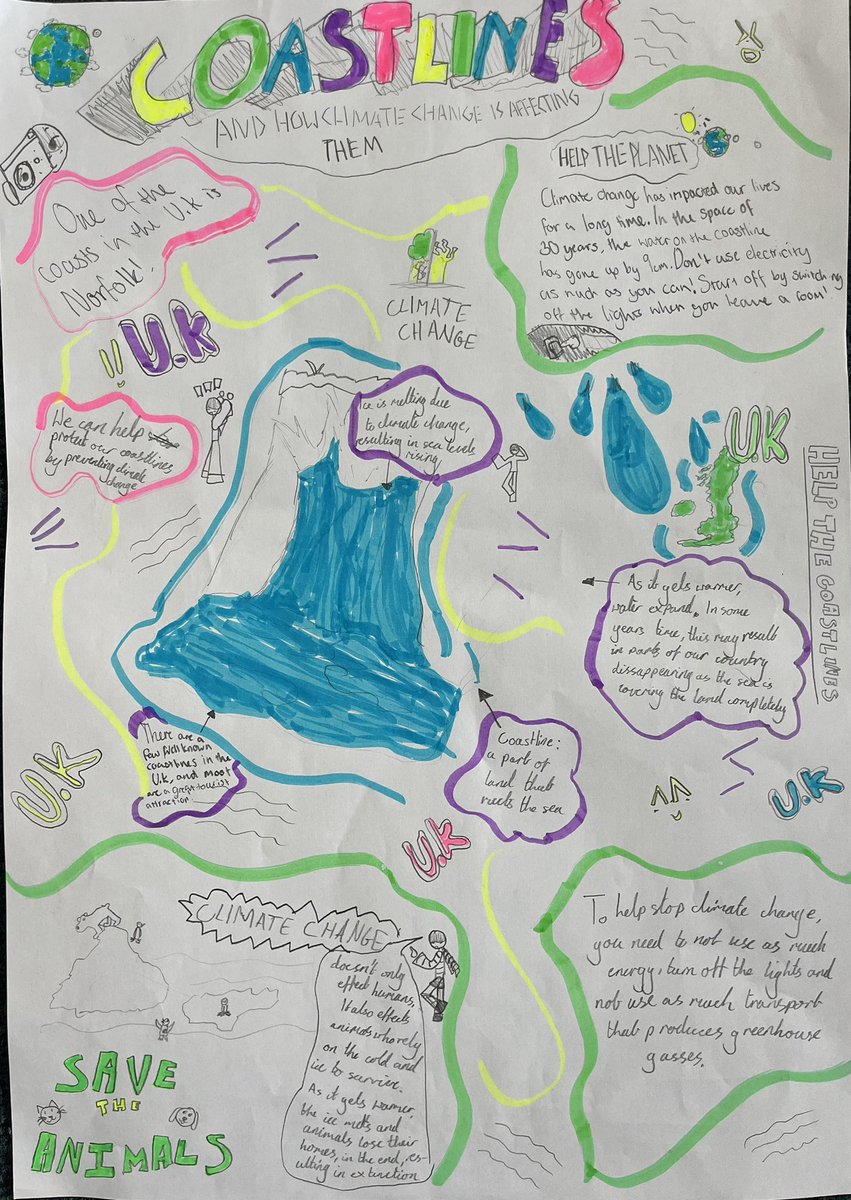 COASTLINES
AND HOW CLIMATE CHANGE IS AFFECTING
THEM
One of the
coasts in the U.K is
Norfolk!
HELP THE PLANET
Climate change has impacted our lives
for a long time. In the space of
30 years, the water on the coastline
has gone up by 9cm. Don't use electricity
as much as you can! Start off by switching
off the lights when you leave a room!
CLIMATE
CHANGE
U.K
We can help
protect our coastlines
by preventing climate
change
Ice is melting due
to climate change,
resulting in sea levels
rising
U.K
HELP THE COASTLINES
As it gets warmer,
water expand. In some
years time, this may result
in parts of our country
dissappearing as the sea is
covering the land completely
There are a
few well known
coastlines in the
U.K, and most
are a great tourist
attraction
Coastline:
a part of
land that
meets the sea
U.K
U.K
U.K
CLIMATE CHANGE
doesn't only
effect humans,
It also effects
animals who rely
on the cold and
ice to survive.
As it gets warmer,
the ice melts and
animals lose their
homes, in the end, res-
ulting in extinction
SAVE
THE
ANIMALS
To help stop climate change,
you need to not use as much
energy, turn off the lights and
not use as much transport
that produces greenhouse
gasses.